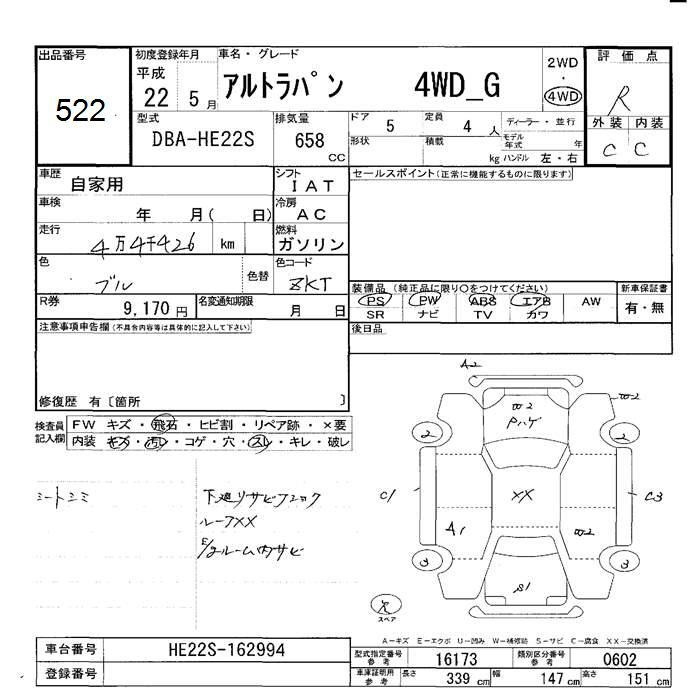 出品番号 522
初度登録年月 平成 22 5月
車名・グレード アルトラパン 4WD_G
2WD ・ 4WD
評価点 R
外装 内装
C C
型式 DBA-HE22S
排気量 658 CC
ドア 5 定員 4 人
ディーラー・並行
形状 積載 kg
モデル年式 年
ハンドル 左・右
車歴 自家用
シフト IAT
セールスポイント(正常に機能するものに限ります)
車検 年 月( 日)
冷房 AC
走行 4万4千426 km
燃料 ガソリン
色 ブル 色替
色コード ZKT
装備品 (純正品に限り○をつけてください)
新車保証書
PS PW ABS エアB AW
有・無
SR ナビ TV カワ
R券 9,170円
名変通知期限 月 日
後日品
注意事項申告欄(不具合内容等は具体的に記入して下さい)
修復歴 有〔箇所 〕
検査員記入欄
FW キズ・飛石・ヒビ割・リペア跡・×要
内装 キズ・汚レ・コゲ・穴・スレ・キレ・破レ
シートシミ
下廻リサビフロック
ルーフXX
E/gルーム内サビ
A2
W2
W2
Pハゲ
2
2
C1
XX
C3
A1
W2
3
3
S1
R
スペア
A−キズ E−エクボ U−凹み W−補修跡 S−サビ C−腐食 XX−交換済
車台番号 HE22S-162994
登録番号
型式指定番号 参考 16173
類別区分番号 参考 0602
車庫証明用 参考
長さ 339 cm 幅 147 cm 高さ 151 cm